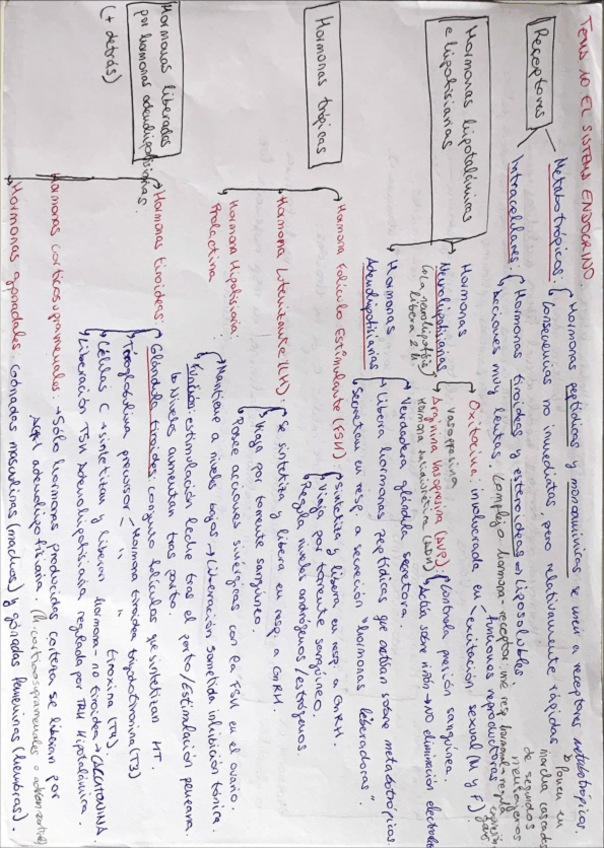 TEMA 10 EL SISTEMA ENDOCRINO.
Receptores
Metabotrópicos: Hormonas peptídicas y monoamínicas se unen a receptores metabotrópicos.
Ponen en marcha cascadas de segundos mensajeros
Consecuencias no inmediatas, pero relativamente rápidas
Intracelulares: Hormonas tiroideas y esteroideas → Liposolubles
Acciones muy lentas. Complejo hormona-receptor:
Hormonas hipotalámicas e hipofisiarias
Hormonas Neurohipofisiarias
(La neurohipófisis libera 2 H
Oxitocina: involucrada en
funciones reproductoras
excitación sexual (M y F)
vasopresina
Arginina Vasopresina (AVP):
Hormona antidiurética (ADH)
Controla presión sanguínea.
Actúa sobre riñón → NO eliminación
Hormonas Adenohipofisiarias
Verdadera glándula secretora.
Libera hormonas peptídicas que actúan sobre metabotrópicos.
Secretan en resp. a secreción "hormonas liberadoras"
Hormonas trópicas
Hormona Folículo Estimulante (FSH):
Sintetiza y libera en resp. a GnRH.
Viaja por torrente sanguíneo.
Regula niveles andrógenos/estrógenos.
Hormona Luteinizante (LH):
Se sintetiza y libera en resp. a GnRH.
Viaja por torrente sanguíneo.
Posee acciones sinérgicas con la FSH en el ovario.
Hormona Hipofisiaria: Prolactina
Mantiene a niveles bajos → Liberación sometida inhibición tónica.
Función: estimulación leche tras el parto/Estimulación
↳ Niveles aumentan tras parto.
Hormonas liberadas por hormonas adenohipofisiarias.
(+ detrás)
Hormonas tiroideas:
Glándula tiroides: conjunto folículos que sintetizan HT.
Tiroglobulina precursor
tiroxina (T4).
Hormona tiroidea triyodotironina (T3)
Células C → sintetizan y liberan hormona no tiroidea → CALCITONINA
Liberación TSH Adenohipofisiaria regulada por TRH Hipotalámica.
Hormonas corticosuprarrenales: → Solo hormonas producidas corteza se liberan por
adenohipofisiaria. (H. corticosuprarrenales o
Hormonas gonadales: Gónadas masculinas (machos) y gónadas femeninas (hembras).